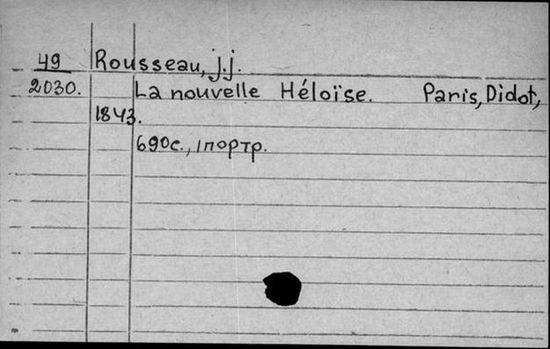 49 Rousseau, j.j.
2030. La nouvelle Héloïse. Paris, Didot,
1843.
690с., 1портр.